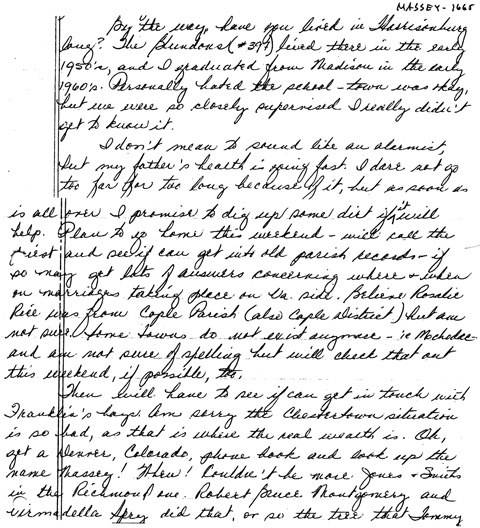 MASSEY-1665
By the way, have you lived in Harrisonburg
long? The Blundons (#397) lived there in the early
1950's, and I graduated from Madison in the early
1960's. Personally hated the school - town was okay,
but we were so closely supervised I really didn't
get to know it.
I don't mean to sound like an alarmist,
but my father's health is going fast. I dare not go
too far for too long because of it, but as soon as
is all over I promise to dig up some dirt if it will
help. Plan to go home this weekend - will call the
priest and see if can get into old parish records - if
so may get lots of answers concerning where & when
on marriages taking place on Va. side. Believe Rosalie
Rice was from Cople Parish (also Cople District) but am
not sure. Some towns do not exist anymore - ie Machodac
and am not sure of spelling but will check that out
this weekend, if possible, too.
Then will have to see if can get in touch with
Franklin's boys. Am sorry the Chestertown situation
is so bad, as that is where the real wealth is. Oh,
get a Denver, Colorado, phone book and look up the
name Massey! Whew! Couldn't be more Jones & Smiths
in the Richmond one. Robert Bruce Montgomery and
Virmadella Spry did that, or so the tree that Tommy